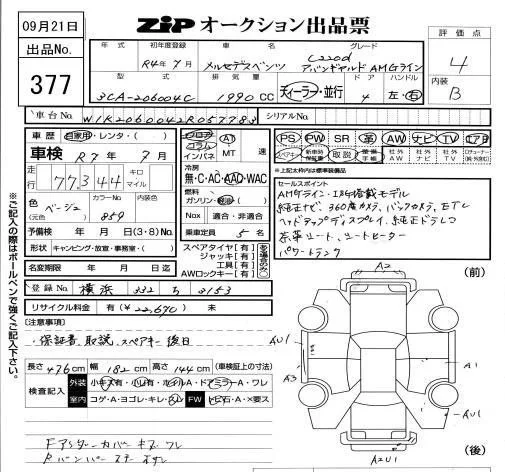 09月21日
ZIP オークション出品票
出品No.
377
評価点
4
内装
B
年式 初年度登録 車名 グレード
R4年7月 メルセデスベンツ C220d アバンギャルド AMGライン
型式 排気量 ドア ハンドル
3CA-206004C 1990CC ディーラー・並行 4 左・右
車台No. W1K2060042R057783 シリアルNo.
車歴 自家用・レンタ・( )
車検 R7年7月
走行 77,344 キロ マイル
色 ベージュ (元色) カラーNo. 859 内装色
予備検 年 月 日 (3・8)No.
形状 キャンピング・放宣・事務室・( )
名変期限 年 月 日 迄
フロア コラム インパネ AT MT 速
冷房 無・C・AC・AAC・WAC
燃料 ガソリン・軽油 ( )
Nox 適合・非適合
乗車定員 5名
スペアタイヤ[有]
ジャッキ[有]
工具[有]
AWロックキー[有]
ある場合のみ○
PS PW SR 革 AW ナビ TV エアB
スペアキー 新車時保証書 取説 整備手帳 社外AW 社外ナビ 社外TV
※上記太枠内は標準装備品
セールスポイント
AMGライン・ISG搭載モデル
純正ナビ、360度カメラ、バックカメラ、ETC
ヘッドアップディスプレイ、純正ドラレコ
茶革シート、シートヒーター
パワートランク
登録No. 横浜 332 ち 3153
リサイクル料金 有(¥22,670) 未
[注意事項]
・保証書、取説、スペアキー後日
長さ 476cm 幅 182cm 高さ 144cm (車検証上の寸法)
検査記入 外装 小キズ有・小凹有・ホイルA・ドアミラーA・ワレ
室内 コゲ・A・ヨゴレ・キレ・スレ FW トビ石・A・×要ス
Fアンダーカバー キズ ワレ
Rバンパー
(前)
A2
AU1
A3
A1
AU1
A2U1
(後)
※ご記入の際はボールペンで強くご記入下さい。